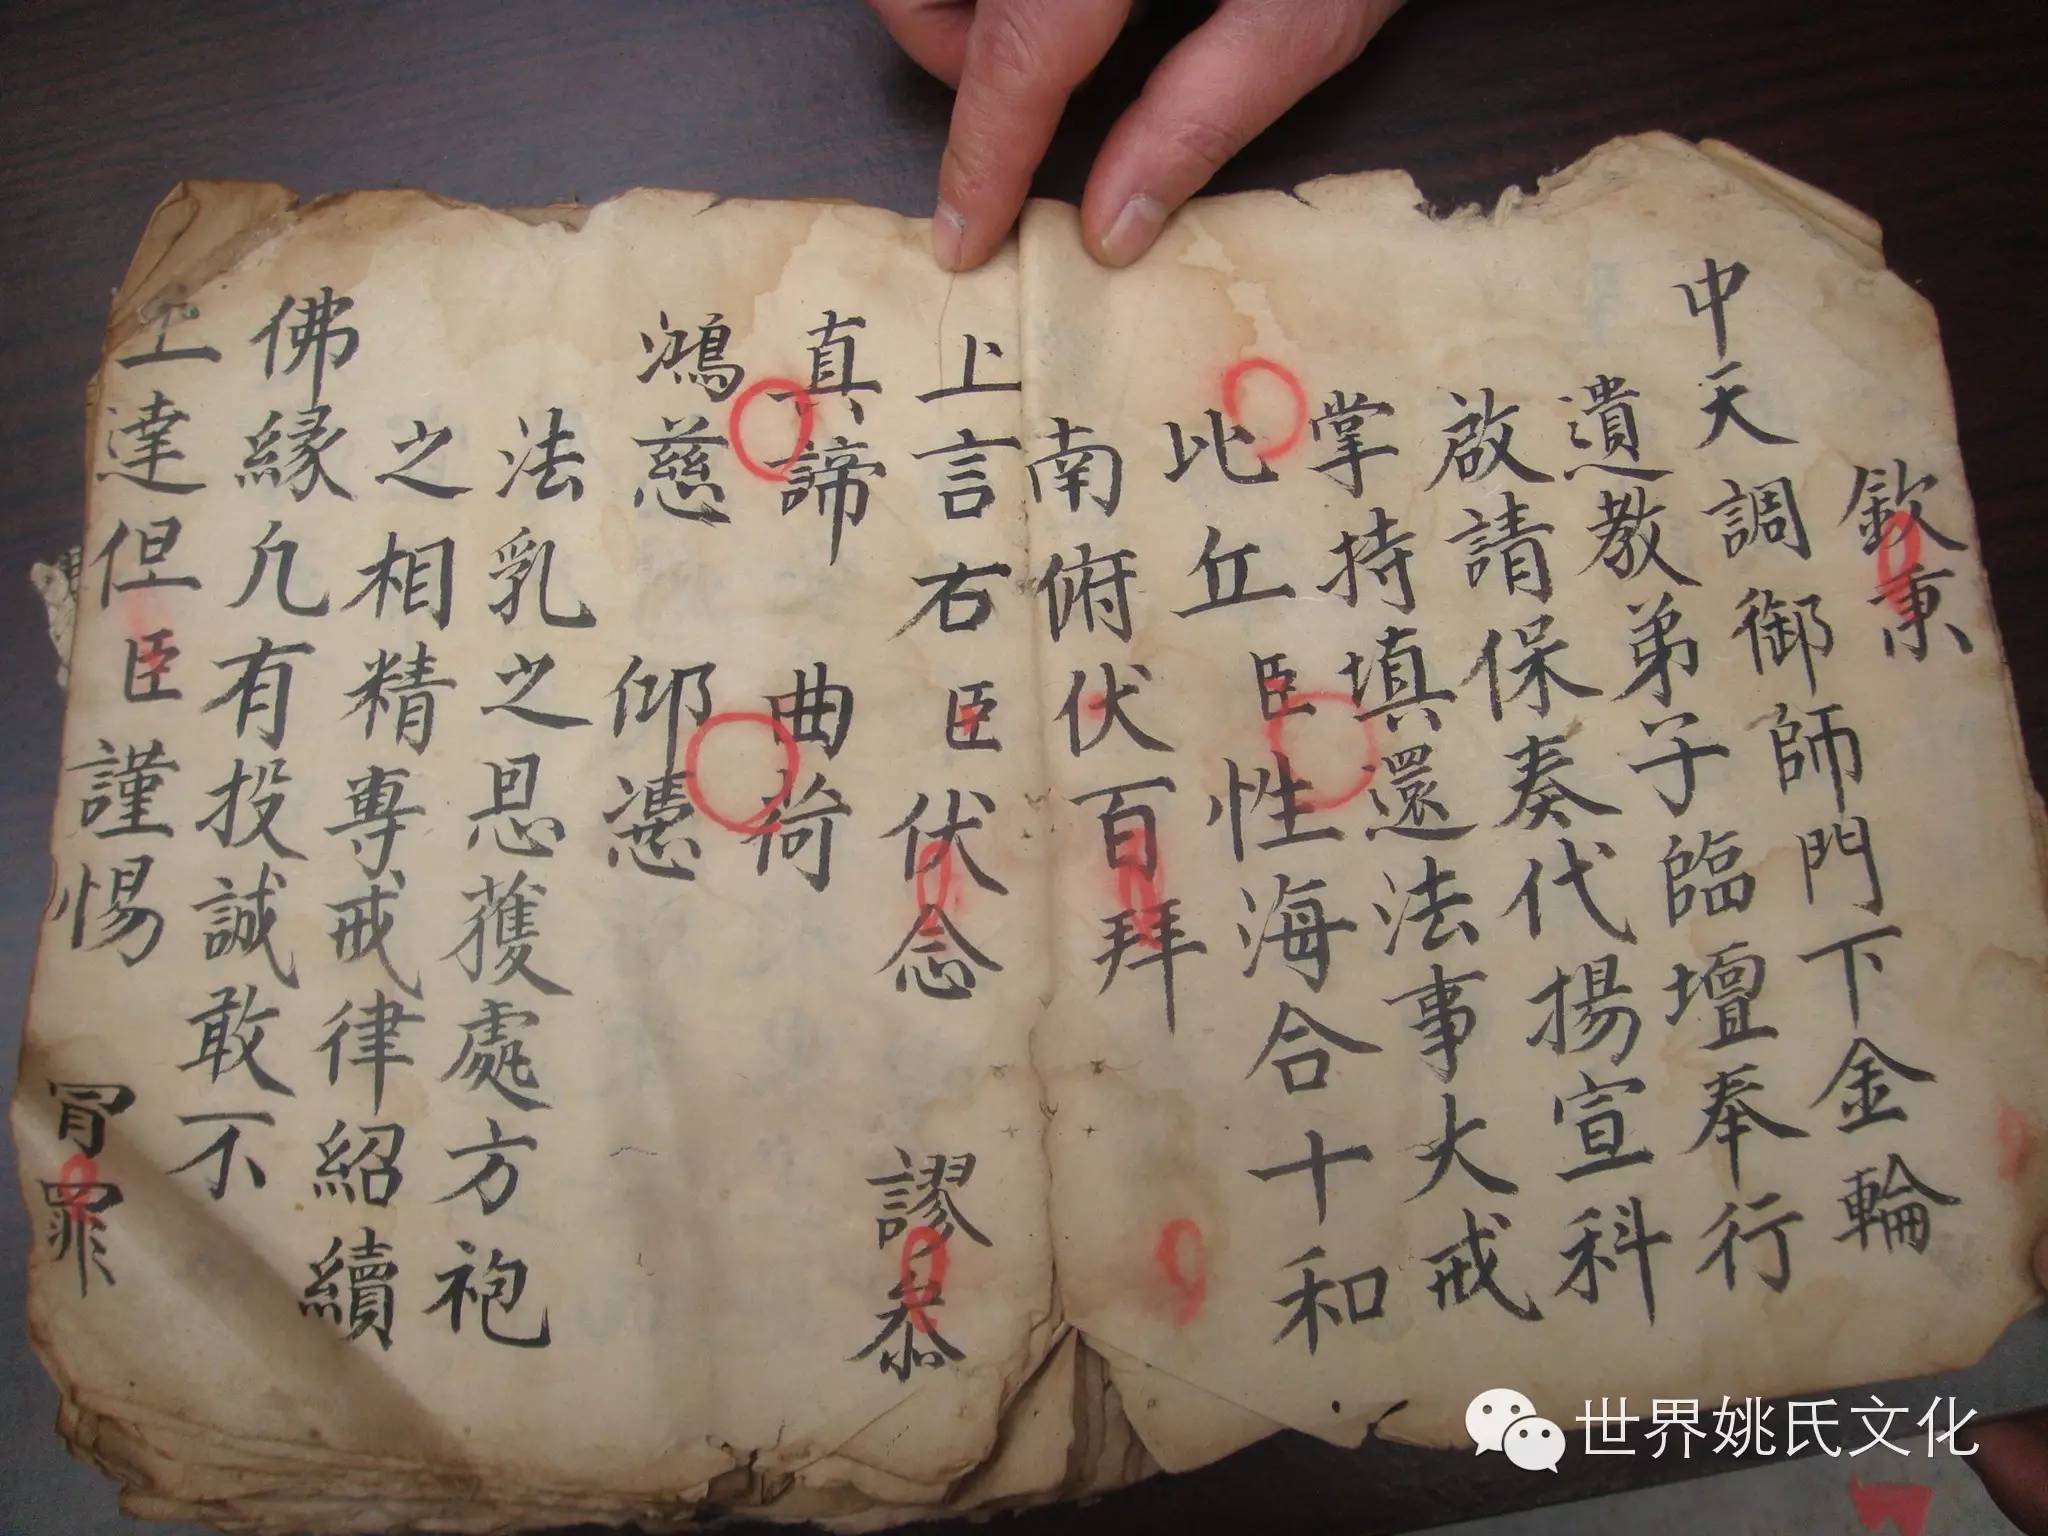 欽秉
中天調御師門下金輪
遺教弟子臨壇奉行
啟請保奏代揚宣科
掌持填還法事大戒
比丘臣性海合十和
南俯伏百拜
上言右臣伏念 謬叅
真諦 曲荷
鴻慈 仰憑
法乳之恩獲處方袍
之相精專戒律紹續
佛緣凢有投誠敢不
上達但臣謹惕 冐罪
世界姚氏文化